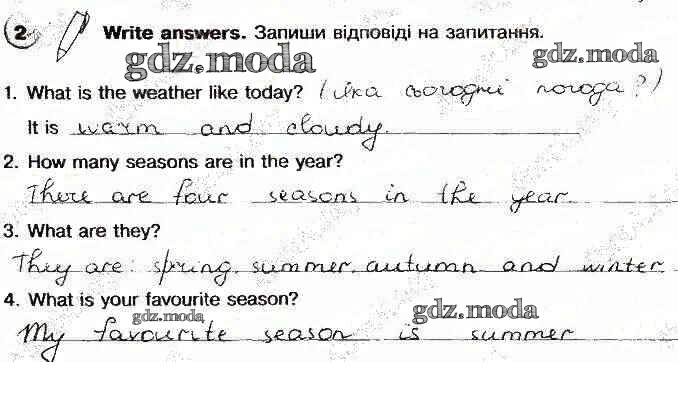 2 Write answers. Запиши відповіді на запитання.
gdz.moda gdz.moda
1. What is the weather like today? (яка сьогодні погода?)
It is warm and cloudy.
2. How many seasons are in the year?
There are four seasons in the year.
3. What are they?
They are: spring, summer, autumn and winter.
4. What is your favourite season?
gdz.moda gdz.moda
My favourite season is summer